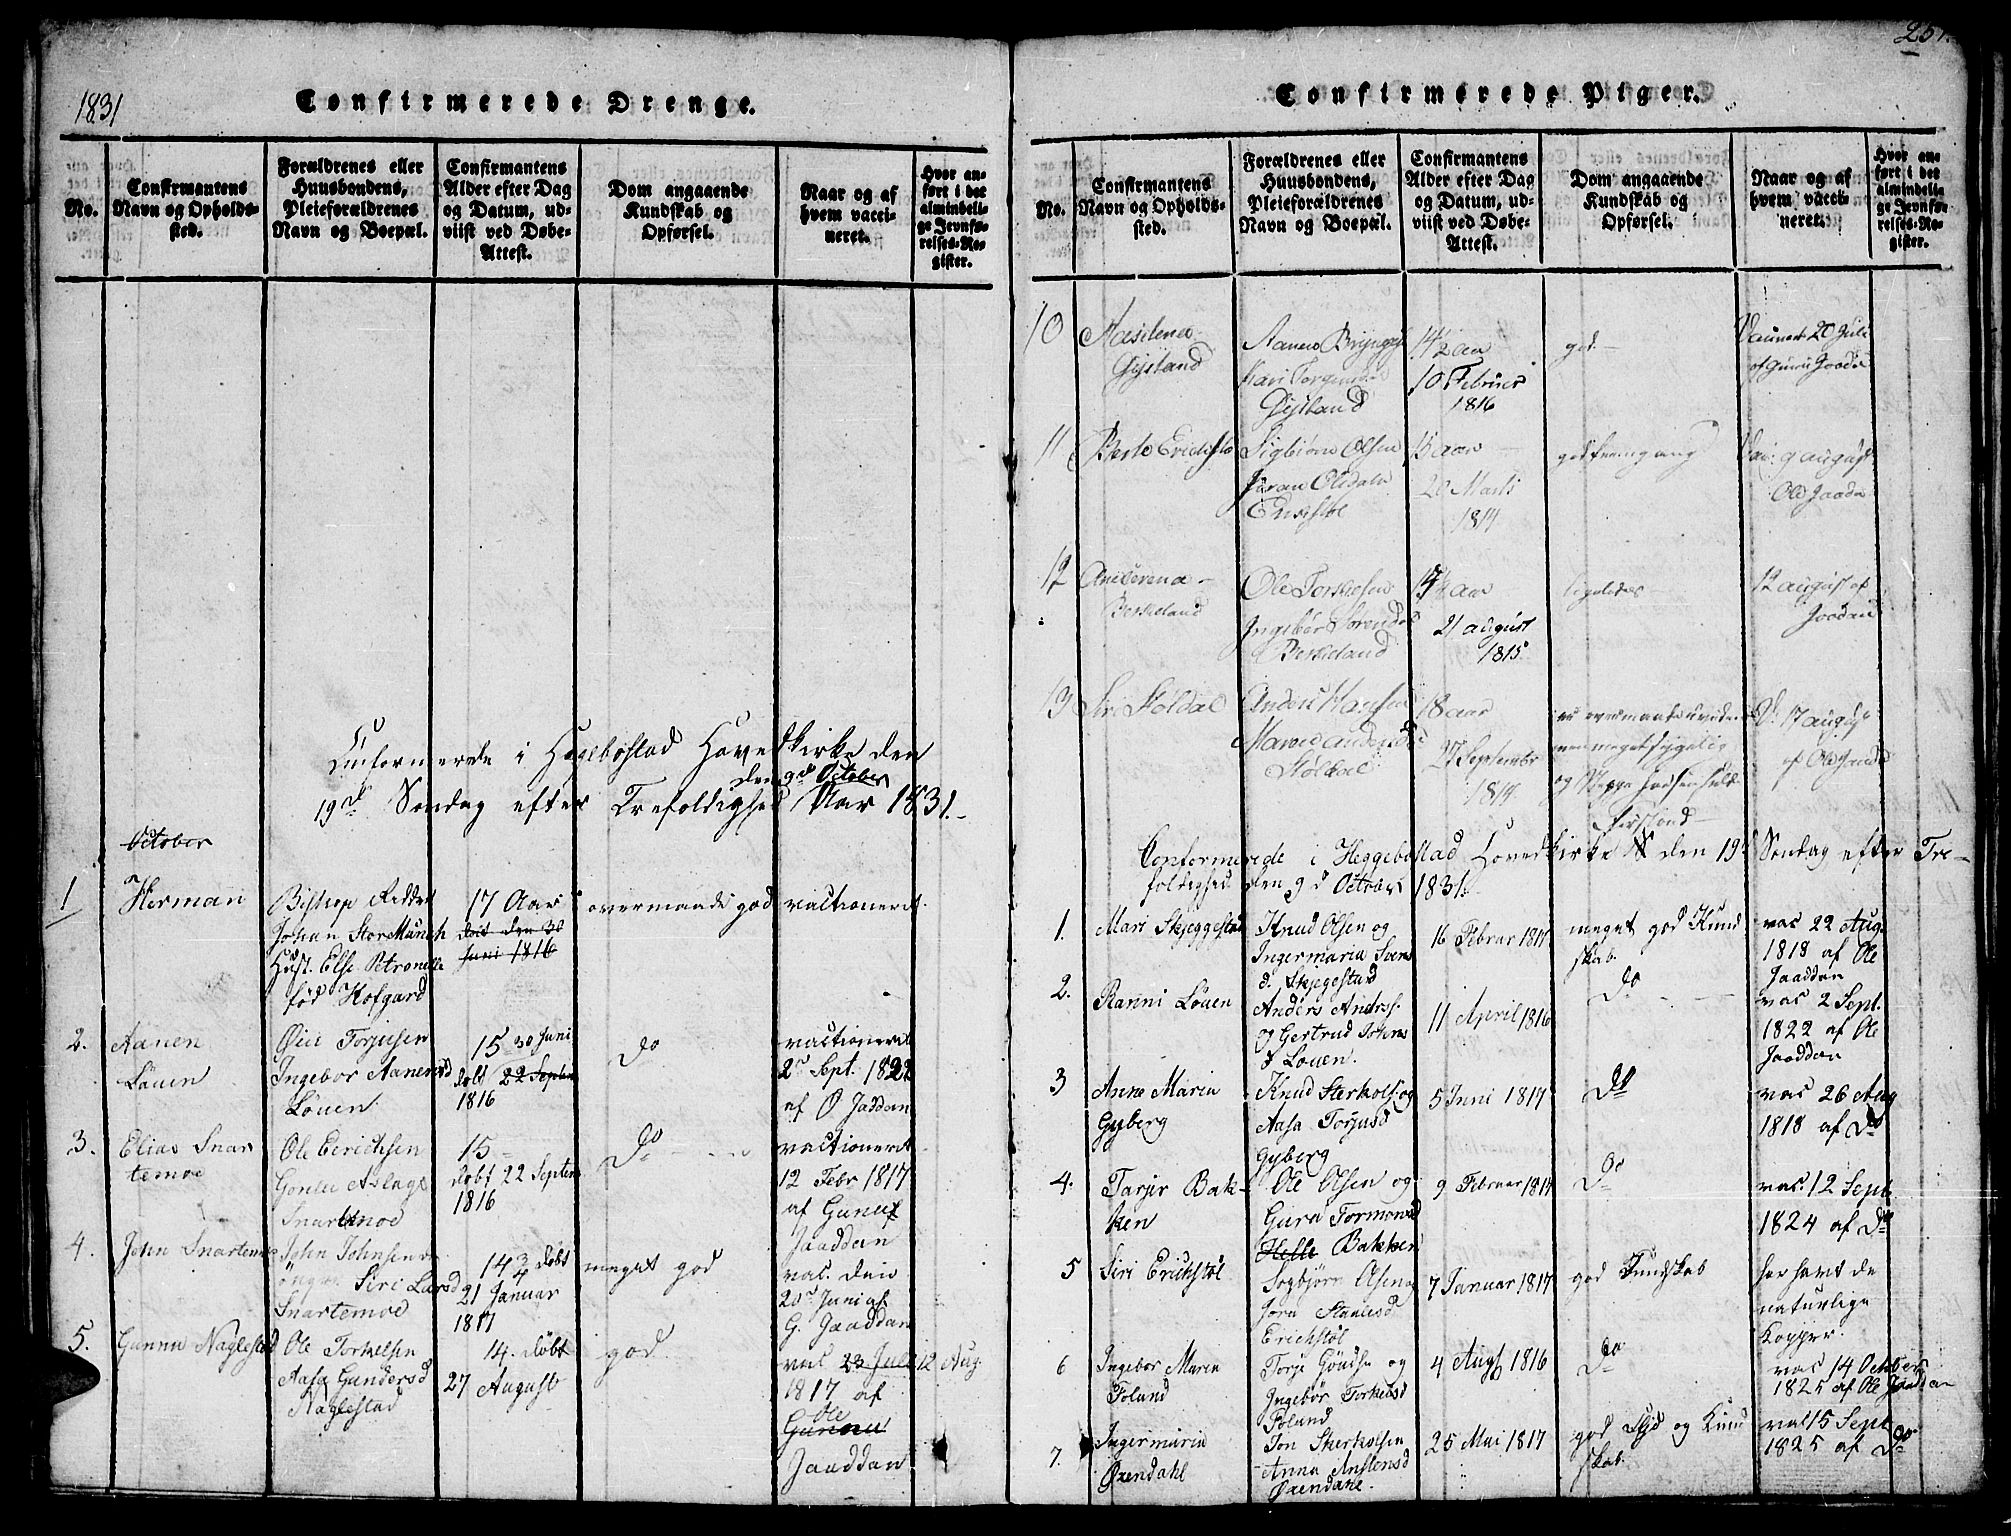 1831
Confirmerede Drenge.
No.
Confirmantens
Navn og Opholds-
sted.
Forældrenes eller
Huusbondens,
Pleieforældrenes
Navn og Boepæl.
Confirmantens
Alder efter Dag
og Datum, ud-
viist ved Døbe-
Attest.
Dom angaaende
Kundskab og
Opførsel.
Naar og af
hvem vacci-
neret.
Hvor an-
ført i det
almindeli-
ge Jevnfø-
relses-Re-
gister.
i Hegebostad Hovedkirke den
den 9de October
19de Søndag efter Trefoldighed Aar 1831.
October
1
Herman
Bishop Ridder
Johan Stor Munch
Hust. Else Petronelle
fød Hofgard
17 Aar
dobt den 30
Juni 1816
overmaade god
vactioneret.
2.
Aanen
Løuen
Øie Torjusen
Ingebor Aanensd
Løuen.
15 30 Juni
dobt 22 Septem
1816
do
vactioneret
2de Sept. 1822
af O Jaddan
3.
Elias Snar
temoe
Ole Eerichsen
Gonlei Aslags
Snartemoe
15
dobt 22 Septem
1816
do
vactioneret
12 Febr 1817
af Gunuf
Jaaddan
4.
John Snartemoe
John Johnsen
Siri Larsd
Snartemoe
14 3/4 døbt
21 Januar
1817
meget god
vac. den
20de Juni af
G. Jaaddan
5.
Gunnu Naglestad
Ole Torkelsen
Aasa Gundersd
Naglestad
14. døbt
27 Augusto
god
vac 23 Juli 12 Aug.
1817 af
Ole
Gunnu
Jaaddan
257.
Confirmerede Piger.
No.
Confirmantens
Navn og Opholds-
sted.
Forældrenes eller
Huusbondens,
Pleieforældrenes
Navn og Boepæl.
Confirmantens
Alder efter Dag
og Datum, ud-
viist ved Døbe-
Attest.
Dom angaaende
Kundskab og
Opførsel.
Naar og af
hvem vacci-
neret.
Hvor an-
ført i det
almindeli-
ge Jevnfø-
relses-Re-
gister.
10
Gysland
Kari Torgius
Gysland
14 1/2 aar
10 Februer
1816
god
20 Juli
af Gunu Jaada
11
Berte Erichstø
Sigbiørn Olsen
Jøran
Erichstøl
15 aar
20 Marti
1817
god fremgang
Vac: 9 august
Ole Jaada
12
Aneserena
Berkeland
Ole Torkelsen
Ingebør Sørensd
Berkeland
21 august
1815
ligeledes
12 august af
Jaadan
13
Siri Støldal
Anders Hansen
Støldal
18 aar
27 September
1817
men meget sygelig
og
Forstand
V. 17 august
af Ole Jaada
Conformerede i Heggebostad Hovedkirke den 19d Søndag efter Tre-
foldighed den 9d October 1831.
1.
Mari Skjeggestad
Knud Olsen og
Ingermaria Svens
d. Skjegestad
16 Februar 1817
meget god Kund
skab.
vac 22 Aug.
1818 af Ole
Jaaddan
2.
Ranni Løuen
Anders Andrss.
og Gertrud Tohens
d Louen.
11 April 1816
do
vac 2 Sept.
1822 af Ole
Jaaddan
3
Anne Maria
Gyberg
Knud Sterkols. og
Aasa Torjusd
Gyberg
5 Juni 1817
do
vac 26 Aug
1818 af do
4.
Tarjer Bak-
ken
Ole Olsen og
Gura Tormonsd
Helle Bakken
9 Februar 1817
do
vac. 12 Sept
1824 af do
5
Siri Erichstøl
Sogbjørn Olsen og
Jora Stanesd
Erichstøl
7 Januar 1817
god Kundskab
har havt de
naturlige
Kopper.
6
Ingebor Maria
Foland
Torje Gøudsn og
Ingebør Torkelsd
Foland
4 Augs 1816
do
vac 14 October
1825 af Ole Jaaddan
7.
Ingermaria
Øxendahl
Jon Sterkolsen
Anna Anstensd
Øxendahl.
25 Mai 1817
god Flid og Kund
skab.
vac 15 Sept
1825 af do